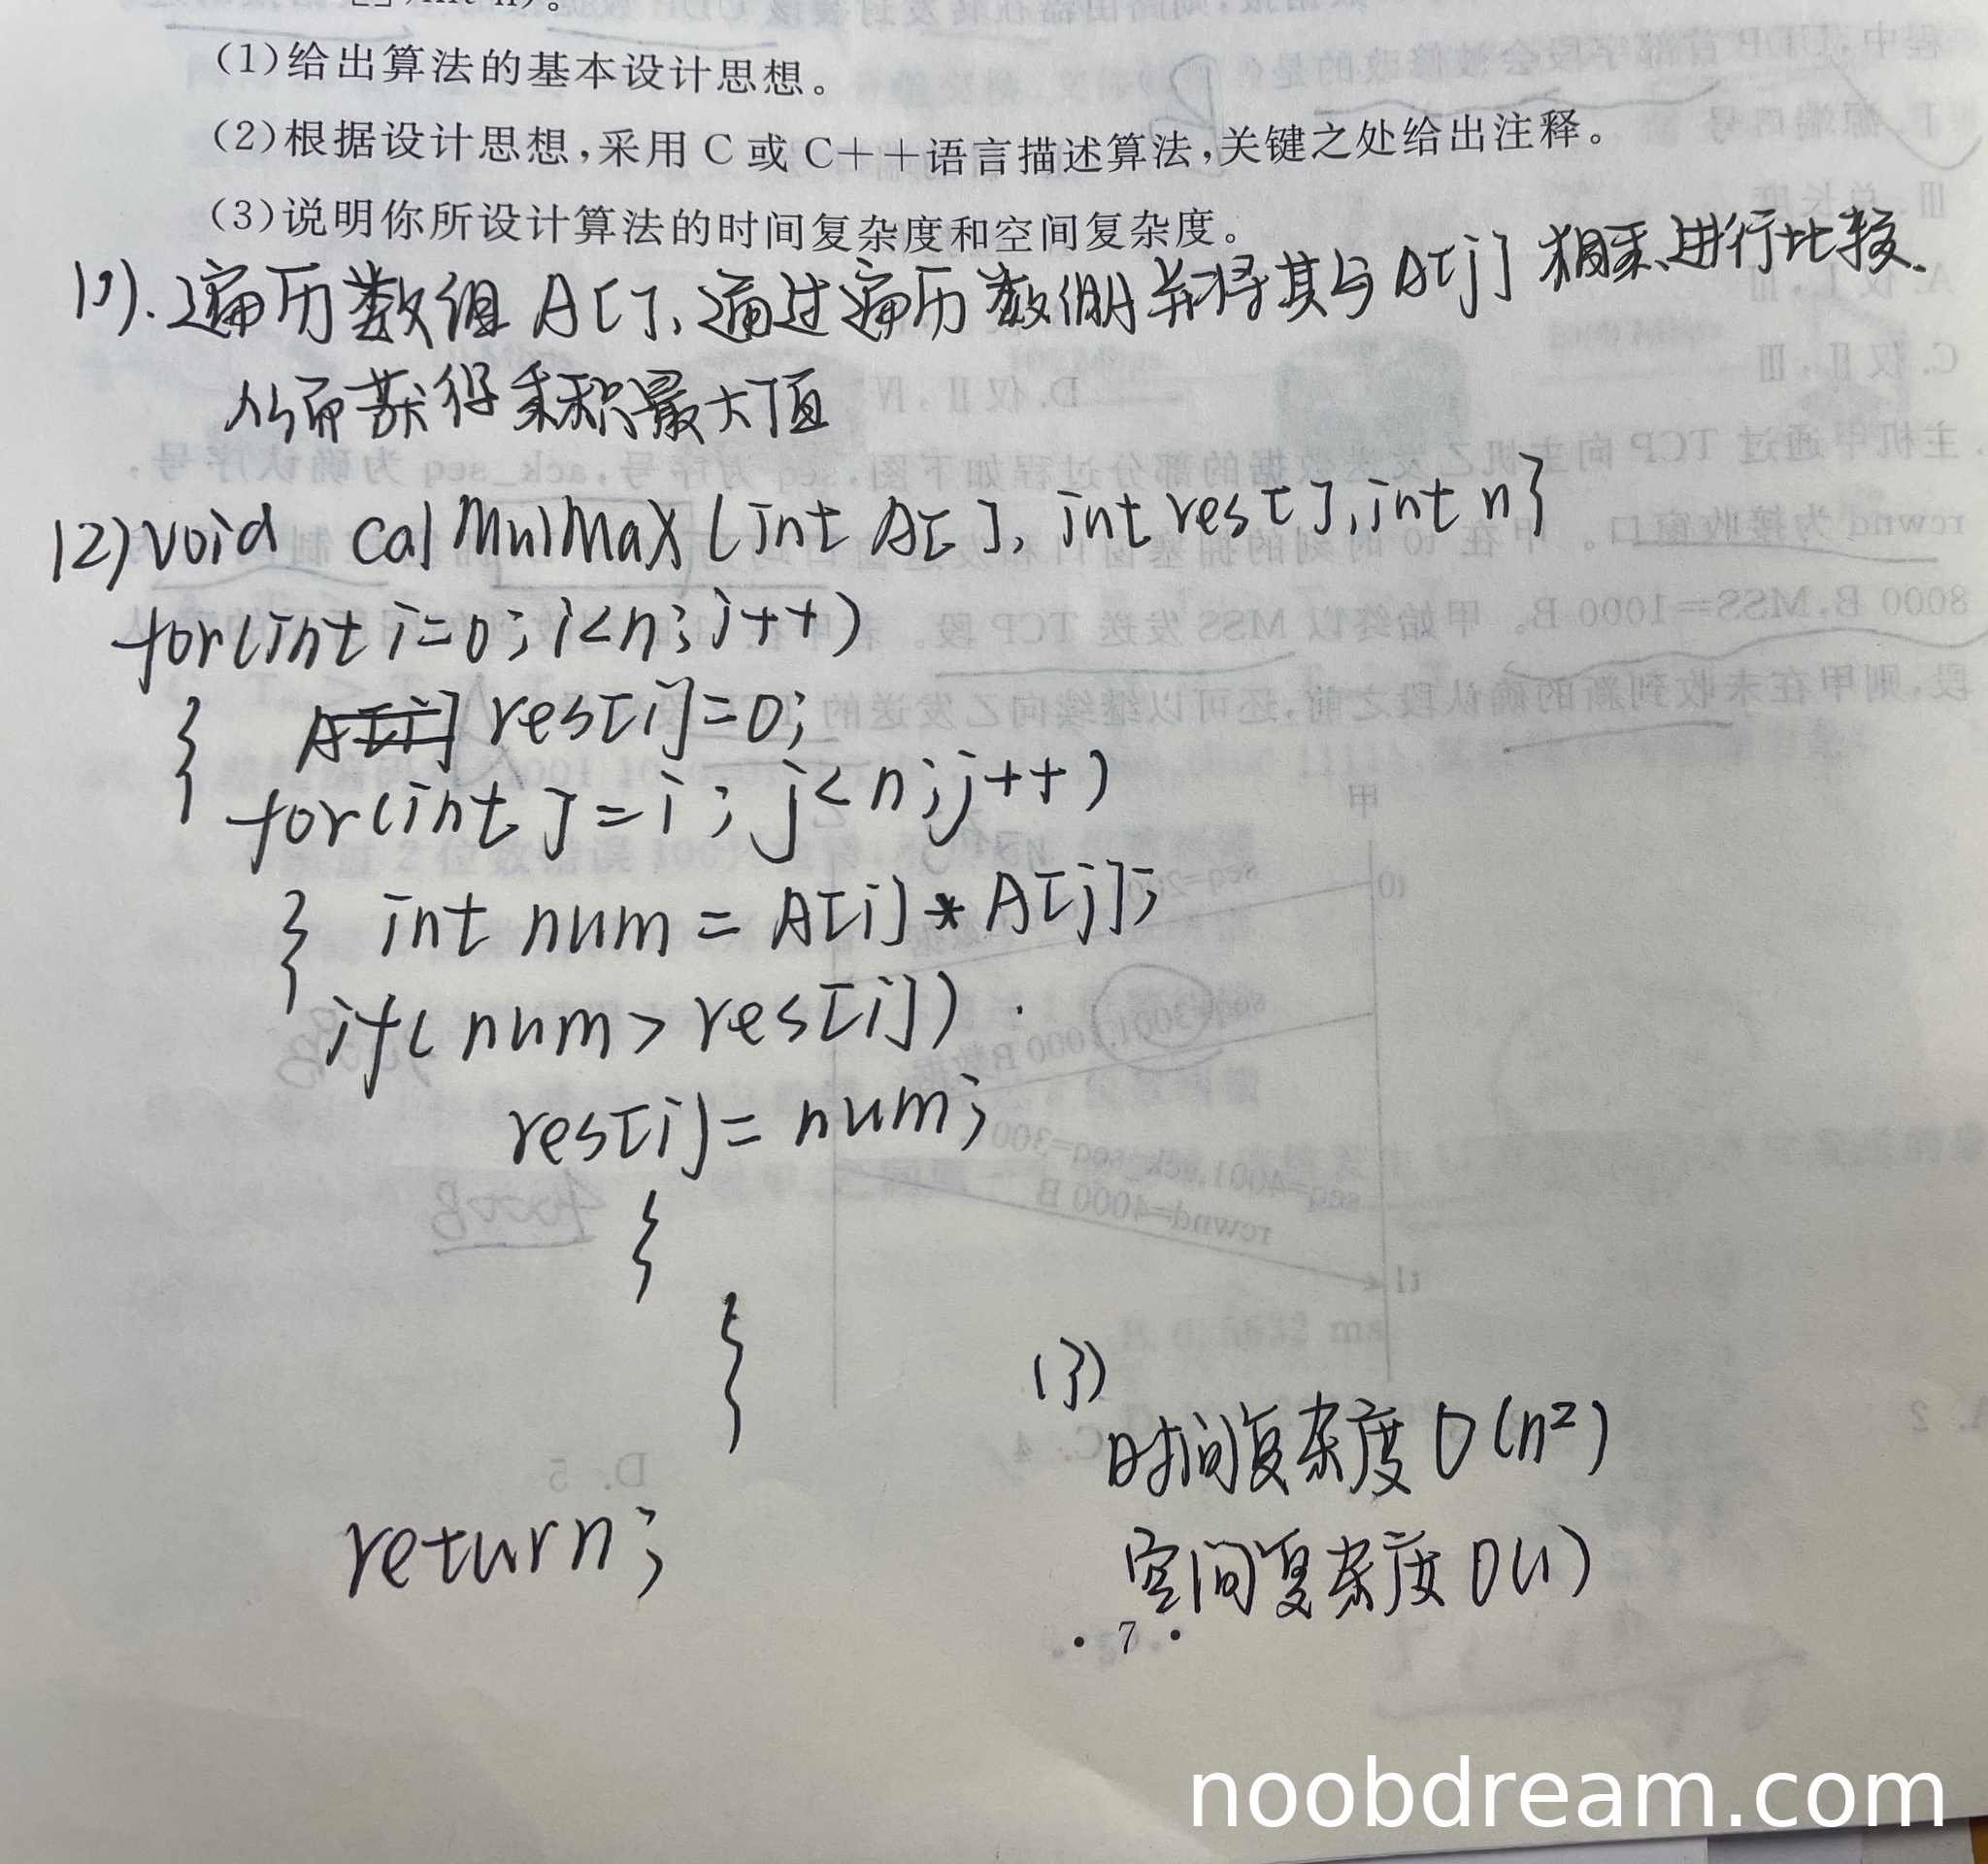 (1)给出算法的基本设计思想。
(2)根据设计思想,采用C或C++语言描述算法,关键之处给出注释。
(3)说明你所设计算法的时间复杂度和空间复杂度。
(1).遍历数组A[],通过遍历数组并将其与A[j]相乘、进行比较.
从而获得乘积最大值
(2)void calMulMax(int A[], int res[], int n}
for(int i=0; i<n; i++)
{ A[i] res[i]=0;
for(int j=i; j<n; j++)
{ int num = A[i]*A[j];
if(num>res[i])
res[i]=num;
}
}
return;
(3)
时间复杂度O(n²)
空间复杂度O(1)
• 7 •
noobdream.com